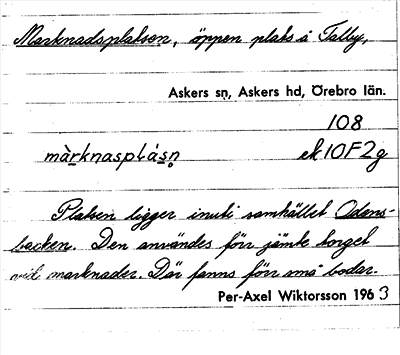 Marknadsplatsen, öppen plats å Talby,
Askers sn, Askers hd, Örebro län.
108
màrknasplásn̥ ek10F2g
Platsen ligger inuti samhället Odens-
backen. Den användes förr jämte torget
vid marknader. Där fanns förr små bodar.
Per-Axel Wiktorsson 1963